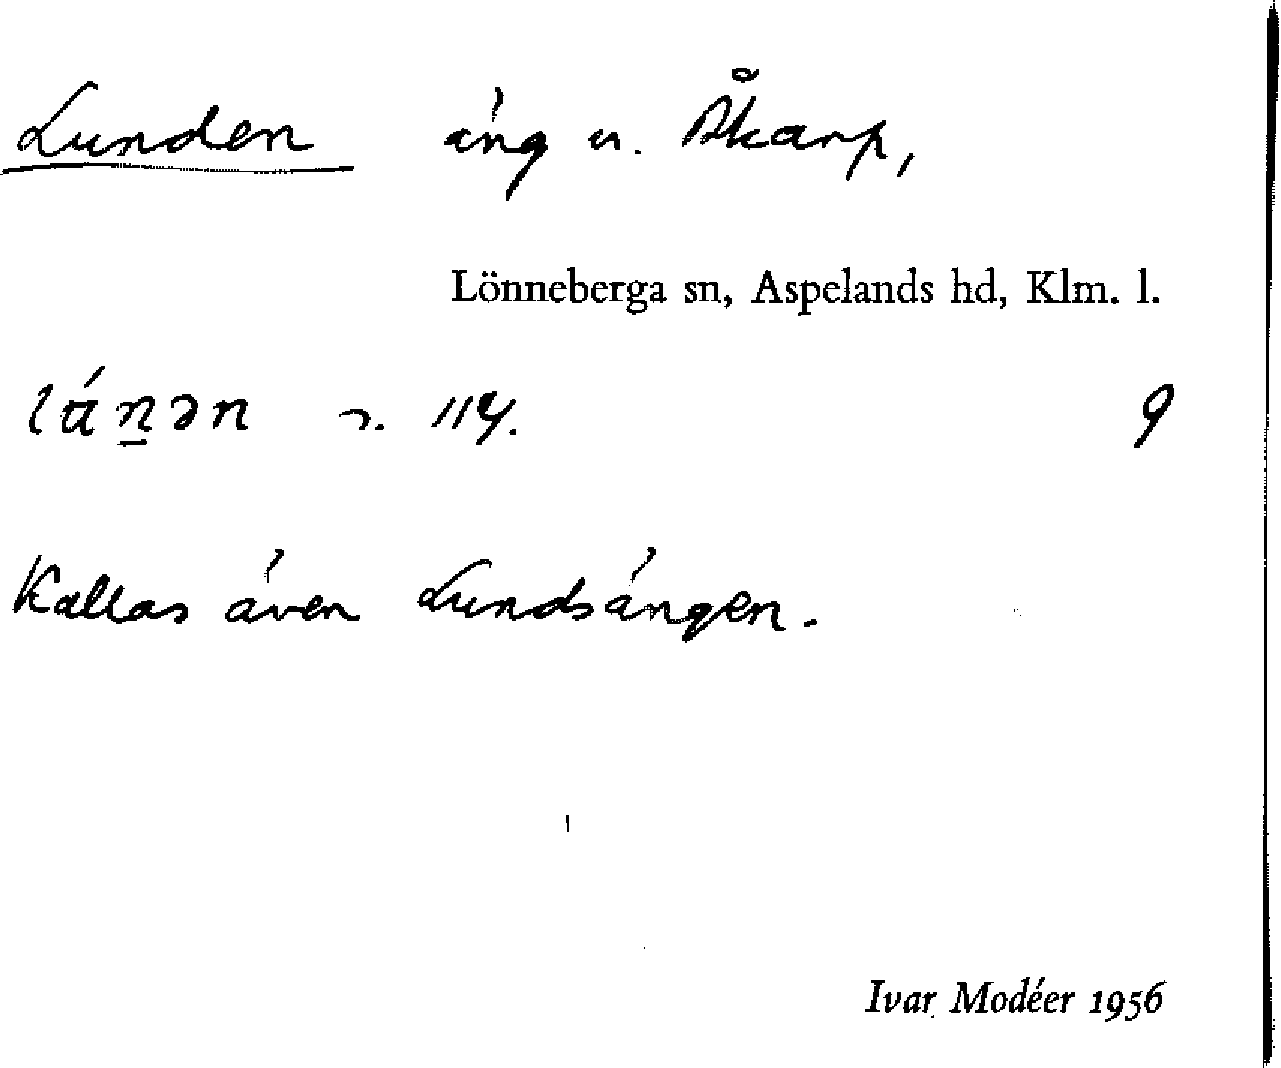 Lunden äng u. Åkarp,
Lönneberga sn, Aspelands hd, Klm. l.
114. 9
Kallas även Lundsängen.
Ivar Modéer 1956